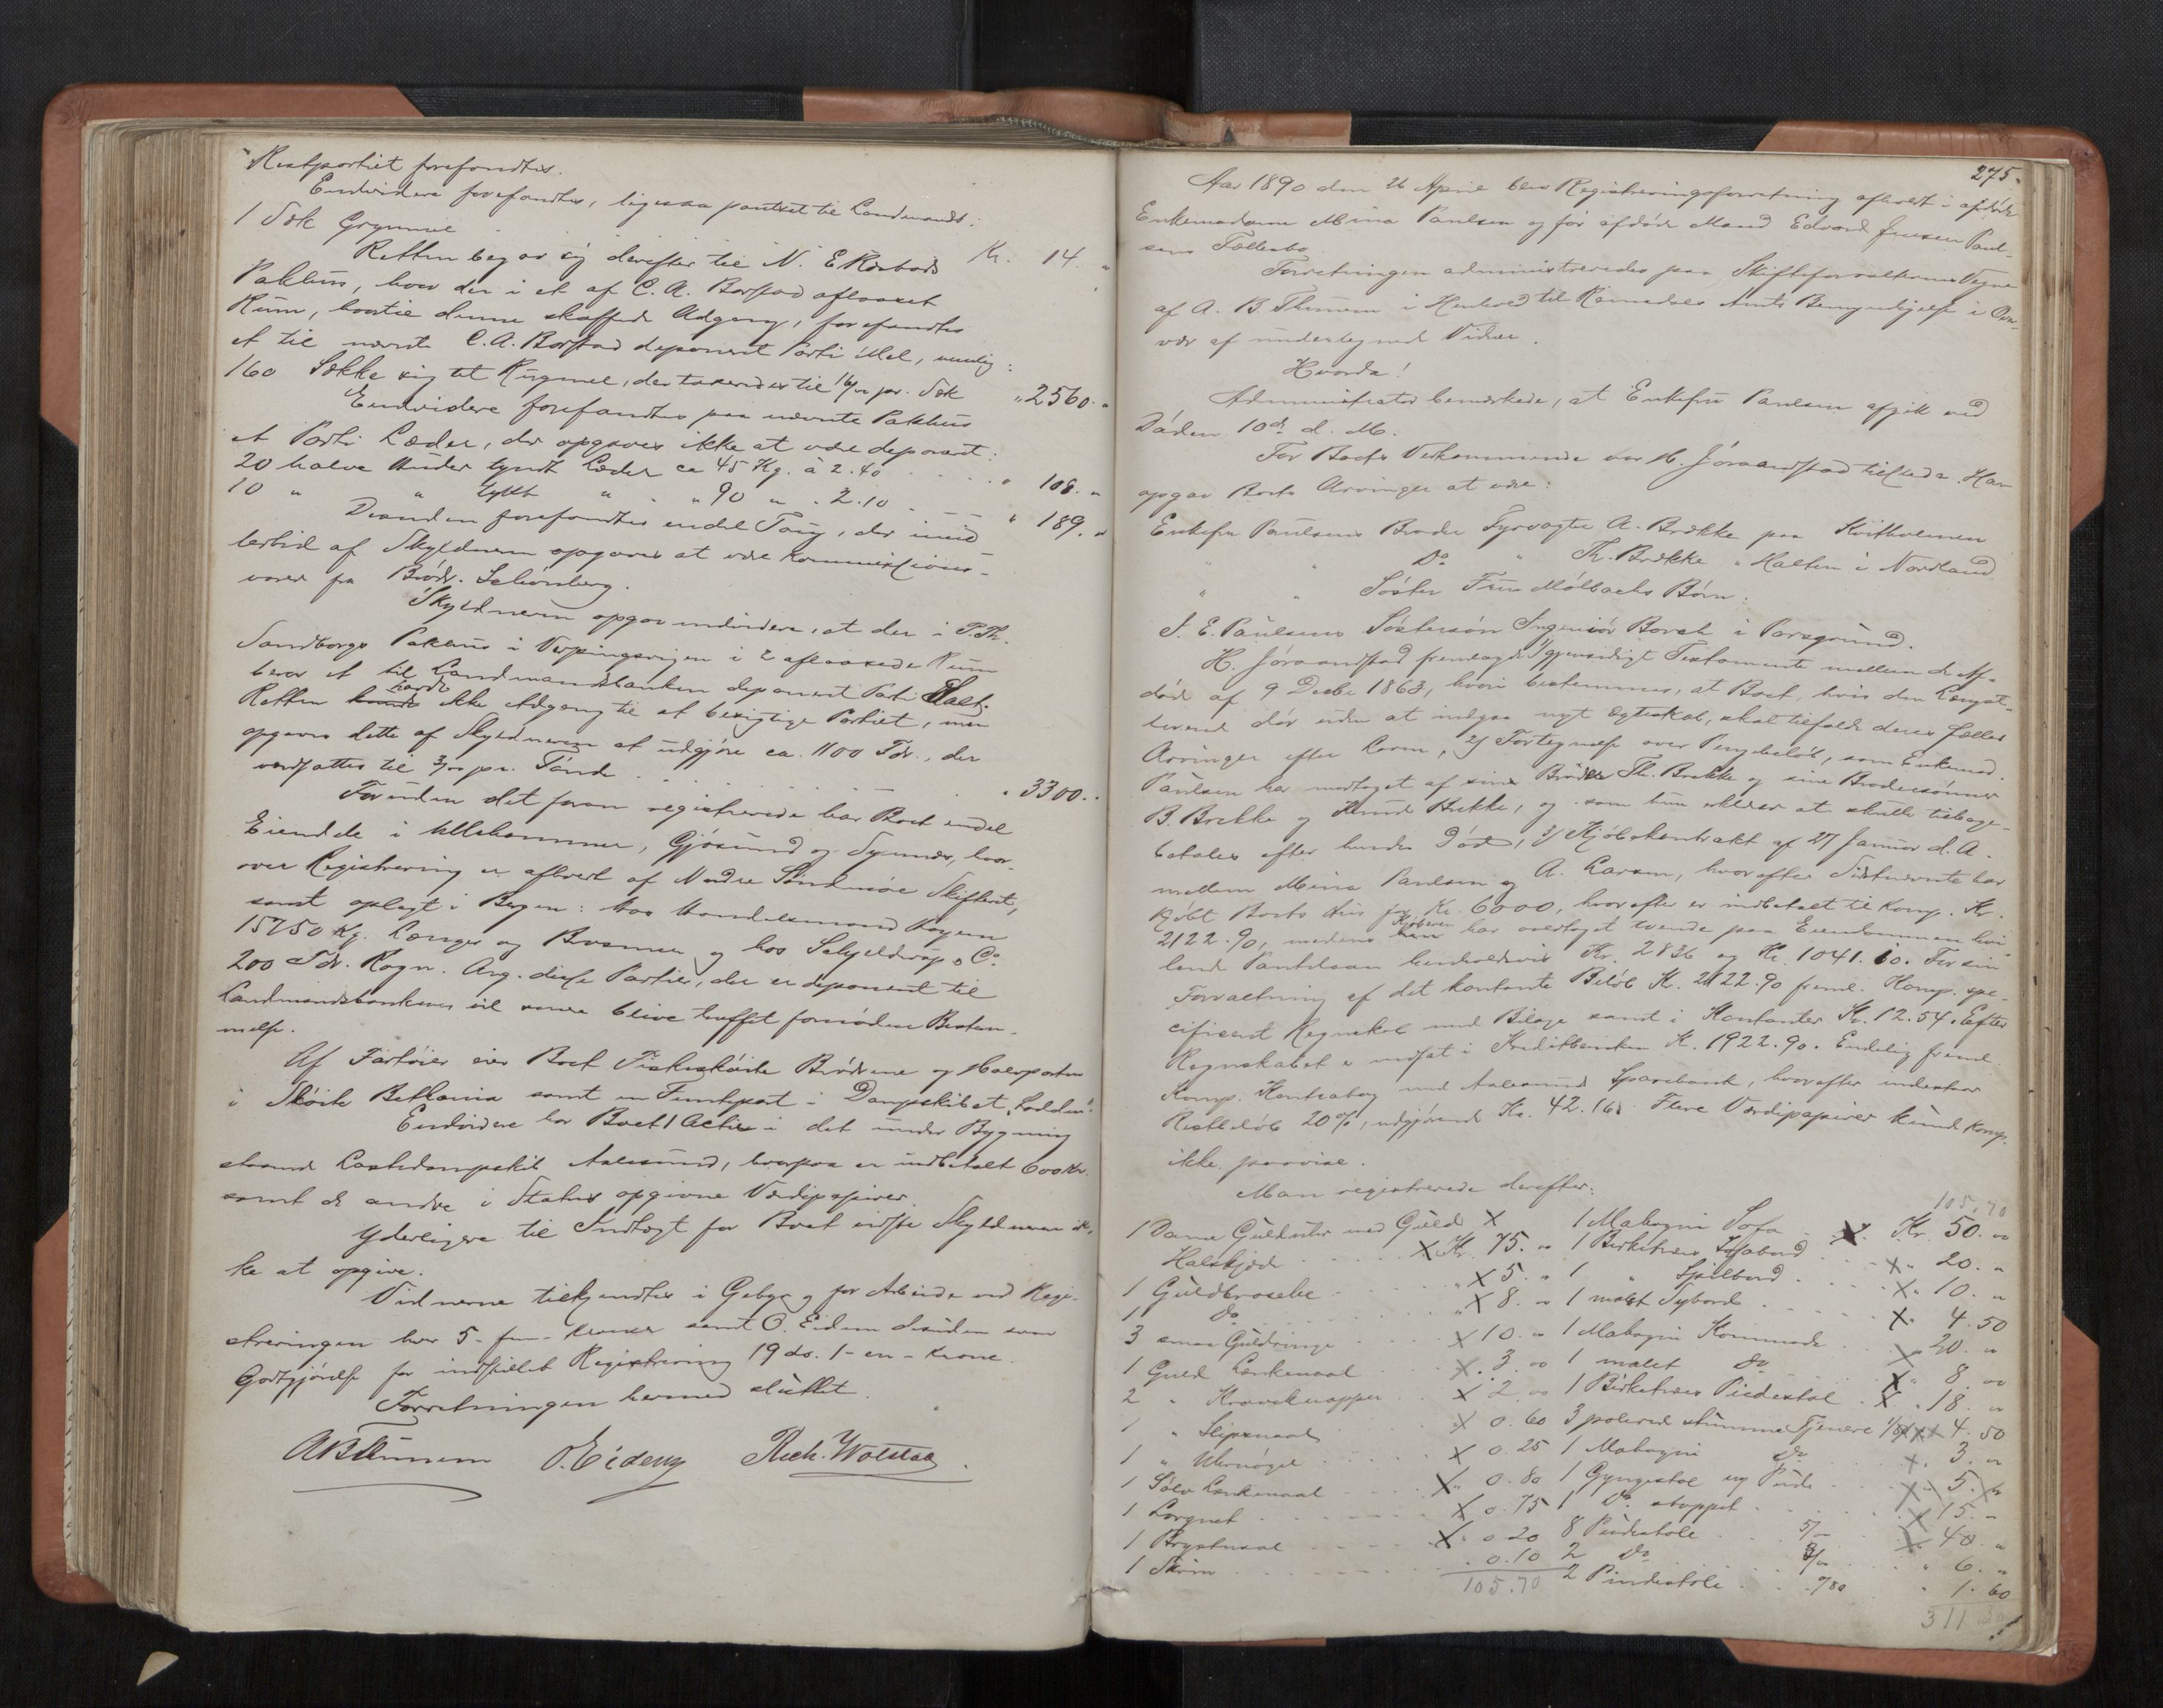 Restpartiet forefandtes.
Endvidere forefandtes, ligesaa pantsat til Landmandsb:
1 Sæk Grynmel Kr. 14. "
Retten begav sig derefter til N. E. Rørstads
Pakhus, hvor der i et af C. A. Borstad aflaaset
Rum, hvortil denne skaffede Adgang, forefandtes
et til nævnte C. A. Borstad deponeret Parti Mel, nemlig:
160 Sække sigtet Rugmel, der taxeredes til 16/00 pr. Sæk " 2560. "
Endvidere forefandtes paa nævnte Pakhus
et Parti Læder, der opgaves ikke at være deponeret:
20 halve Huder tyndt Læder ca 45 Kg. à 2.40 " 108. "
10 " " tykt " " 90 " " 2.10 " 189. "
Desuden forefandtes endel Tøug, der imid
lertid af Skyldneren opgaves at være Kommissions-
varer fra Brødr. Schönberg.
Skyldneren opgav endvidere, at der i P. Th.
Sandborgs Pakhus i Vepingsvigen i 2 aflaasede Rum
beror et til Landmandsbanken deponeret Parti Salt.
Retten havde ikke Adgang til at besigtige Partiet, men
opgaves dette af Skyldneren at udgjøre ca. 1100 Tdr., der
værdsattes til 3/00 pr. Tønde " 3300. "
Foruden det foran registrerede har Boet endel
Eiendele i Ullahammer, Gjøsund og Synnæs, hvor-
over Registrering er afholdt af Nordre Søndmøre Skifteret,
samt oplagt i Bergen: hos Handelsmand Kogen
15750 Kg. Længer og Brosmer og hos Schjelderup & Co.
200 Tdr. Rogn. Ang. disse Partier, der er deponeret til
Landmandsbanken vil senere blive truffet fornøden Bestem-
melse.
Af Fartøier eier Boet Fiskeskøite Brødrene og Halvparten
i Skøite Bethania samt en Femtepart i Dampskibet "Lodden".
Endvidere har Boet 1 Actie i det under Bygning
staaende Lastedampskib Aalesund, hvorpaa er indbetalt 600 Kr.
samt de andre i Status opgivne Værdipapirer.
Yderligere til Indtægt for Boet vidste Skyldneren ik-
ke at opgive.
Vidnerne tilkjendtes i Gebyr og for Arbeide ved Regi-
streringen hver 5 - fem - Kroner samt O. Eidem desuden som
Godtgjørelse for indstillet Registrering 19 ds. 1 - en - Krone.
Forretningen hermed sluttet.
A B Thinnem O. Eidem Rich. Wolstad
275.
Aar 1890 den 26 April blev Registreringsforretning afholdt i afdøde
Enkemadame Mina Paulsen og før afdøde Mand Edvard Jensen Paul-
sens Fællesbo
Forretningen administreredes paa Skifteforvalterens Vegne
af A. B. Thinnem i Henhold til Romsdals Amts Bemyndigelse i Over-
vær af undertegnede Vidner.
Hvorda!
Administrator bemærkede, at Enkefru Paulsen afgik ved
Døden 10de d. M.
For Boets Vedkommende var H. Jöraandstad tilstede. Han
opgav Boets Arvinger at være:
Enkefru Paulsens Broder Fyrvogter A. Brække paa Kvitholmen
" " Do " Th. Brække " Halten i Nordland
" " Søster Fru Mölbachs Børn:
J. E. Paulsens Søstersøn Ingeniør Borch i Porsgrund.
H. Jöraandstad fremlagde 1/ gjensidigt Testamente mellem de Af-
døde af 9 Decbr 1863, hvori bestemmes, at Boet, hvis den Længst-
levende dør uden at indgaa nyt Ægteskab, skal tilfalde deres fælles
Arvinger efter Loven, 2/ Fortegnelse over Pengebeløb, som Enkemad.
Paulsen har modtaget af sine Brødre Th. Brække og sine Brodersønner
B. Brække og Knud Brække, og som hun erklærer at skulle tilbage-
betales efter hendes Død, 3/ Kjøbekontrakt af 27 Januar d. A.
mellem Mina Paulsen og A. Larsen, hvorefter Sidstnævnte har
kjøbt Boets Hus for Kr. 6000, hvorefter er indbetalt til Komp. Kr.
2122.90, medens Kjøberen har overtaget tvende paa Eiendommen hvi-
lende Pantelaan henholdsvis Kr. 2836 og Kr. 1041.10. For sin
Forvaltning af det kontante Beløb Kr. 2122.90 freml. Komp. spe-
cificeret Regnskab med Bilage samt i Kontanter Kr. 12.54. Efter
Regnskabet er indsat i Kreditbanken Kr. 1922.90. Endelig freml.
Komp. Kontrabog med Aalesunds Sparebank, hvorefter indestaar
Restbeløb 20%, udgjørende Kr. 42.16. Flere Værdipapirer kunde Komp.
ikke paavise.
Man registrerede derefter:
105.70
1 Dame Guldur med Guld X 1 Mahogni Sofa X. Kr. 50. "
Halskjæde X Kr. 75. " 1 Birketræes Sofabord X " 20. "
1 Guldbrosche " X 5. " 1 " Spilbord X " 10. "
1 do " X 8. " 1 malet Sybord X " 4.50
3 smaa Guldringe X 10. " 1 Mahogni Kommode X " 20. "
1 Guld Lænkenaal X " 3. " 1 malet do X " 8. "
2 " Kraveknapper X 2 " 1 Birketræes Piedestal X " 18. "
1 " Slipsnaal X 0.60 3 polerede stumme Tjenere 1/50 XXX 4.50
1 " Uhrnøgel X 0.25 1 Mahogni do X. 3. "
1 Sølv Lænkenaal X " 0.80 1 Gyngestol og Pude X " 5. "
1 Lorgnet X 0.75 1 do. stoppet X 15. "
1 Brystnaal X " 0.20 8 Pudestole 5/- X 40. "
1 Skrin " 0.10 2 do 3/- " 6. "
105.70 2 Pindestole "/80 " 1.60
311